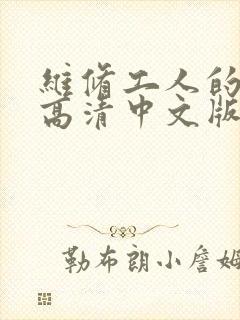 维脩工人的
高清中文版
勒布朗小詹姆